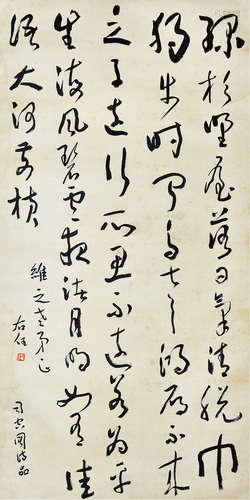 綠杉野屋落日氣清脫巾
獨步時聞鳥聲鴻雁不來
之子遠行所思不遠若為平
生海風碧雲夜渚月明如有佳
語大河前橫
維之老弟正
右任
司空圖詩品